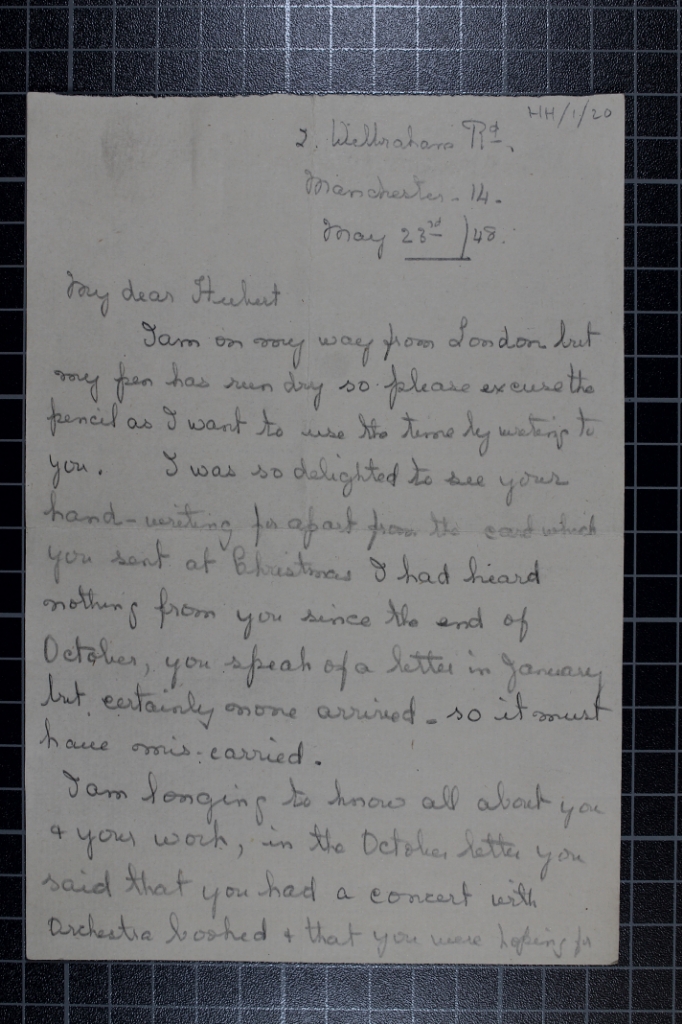 HH/1/20
2. Wilbraham Rd.
Manchester - 14.
May 23rd /48.
My dear Hubert
I am on my way from London but
my pen has run dry so please excuse the
pencil as I want to use the time by writing to
you. I was so delighted to see your
hand-writing for apart from the card which
you sent at Christmas I had heard
nothing from you since the end of
October, you speak of a letter in January
but certainly none arrived - so it must
have mis-carried.
I am longing to know all about you
& your work, in the October letter you
said that you had a concert with
Orchestra booked & that you were hoping for